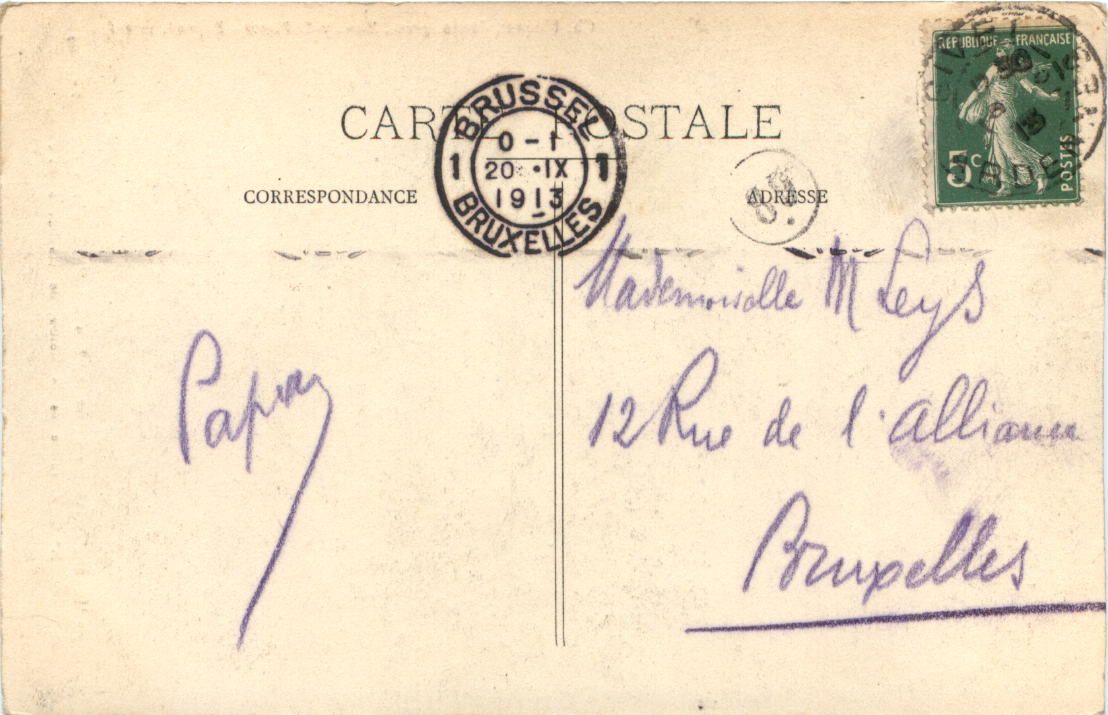 CARTE POSTALE
BRUSSEL
0-1
1 20 IX 1
1913
BRUXELLES
RÉPUBLIQUE FRANÇAISE
5c POSTES
CORRESPONDANCE
ADRESSE
Papa
Mademoiselle M Leys
12 Rue de l'alliance
Bruxelles